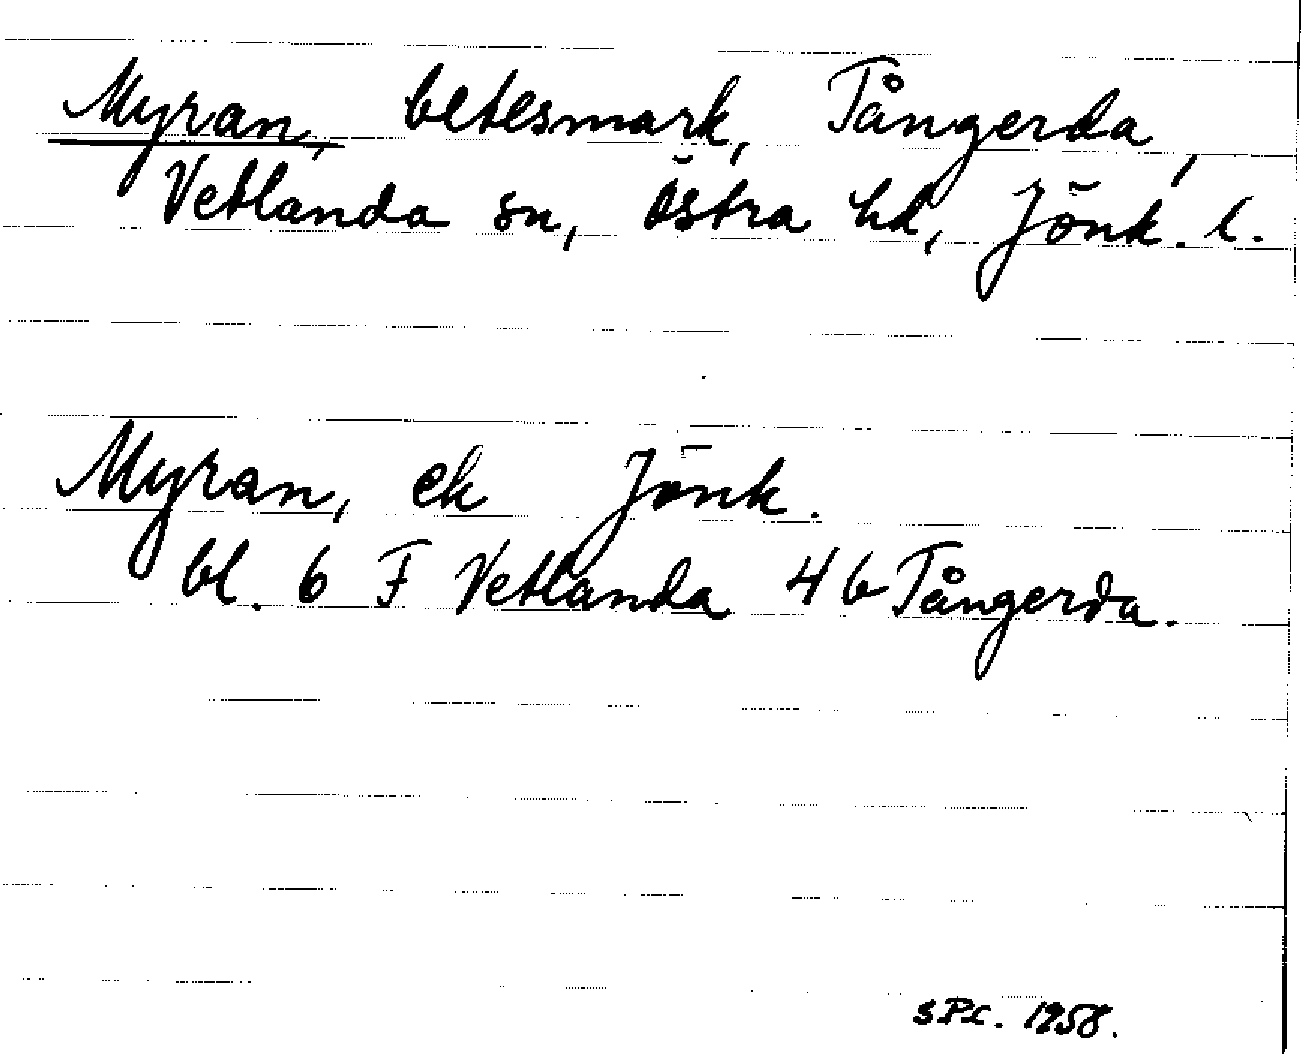 Myran, betesmark, Tångerda,
Vetlanda sn, Östra hd, Jönk. l.
Myran, ek Jönk.
bl. 6 F Vetlanda 4 b Tångerda.
1958.